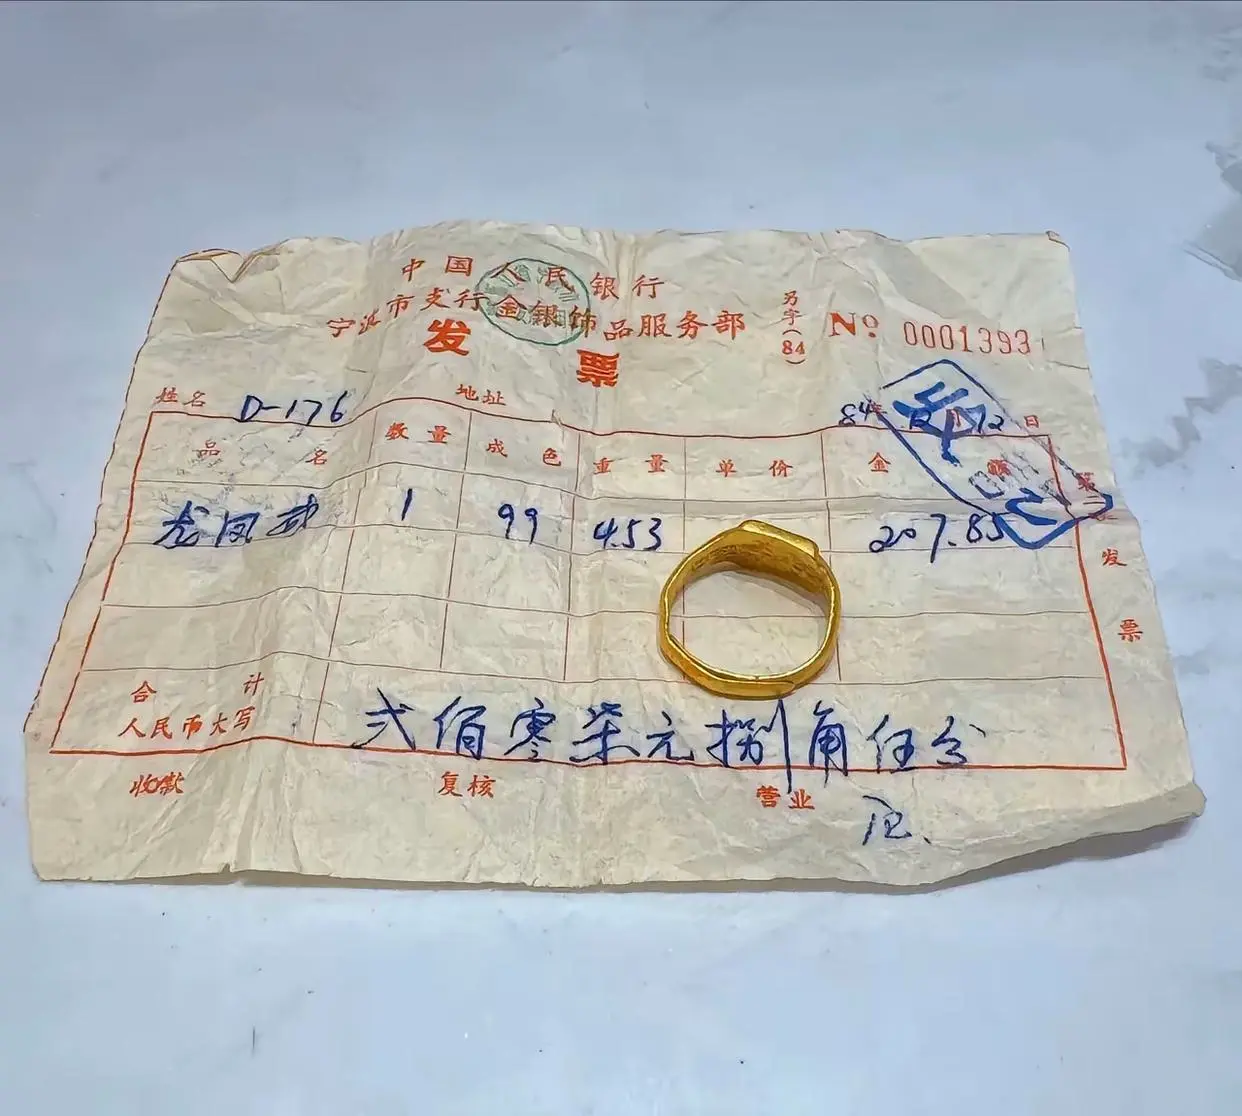 中国人民银行
宁波市支行金银饰品服务部
发票
另字(84)
№ 0001393
姓名 D-176 地址 84年 日
品名 数量 成色 重量 单价 金额
龙凤戒 1 99 4.53 207.85
合计
人民币大写 弍佰零柒元捌角伍分
收款 复核 营业
发票